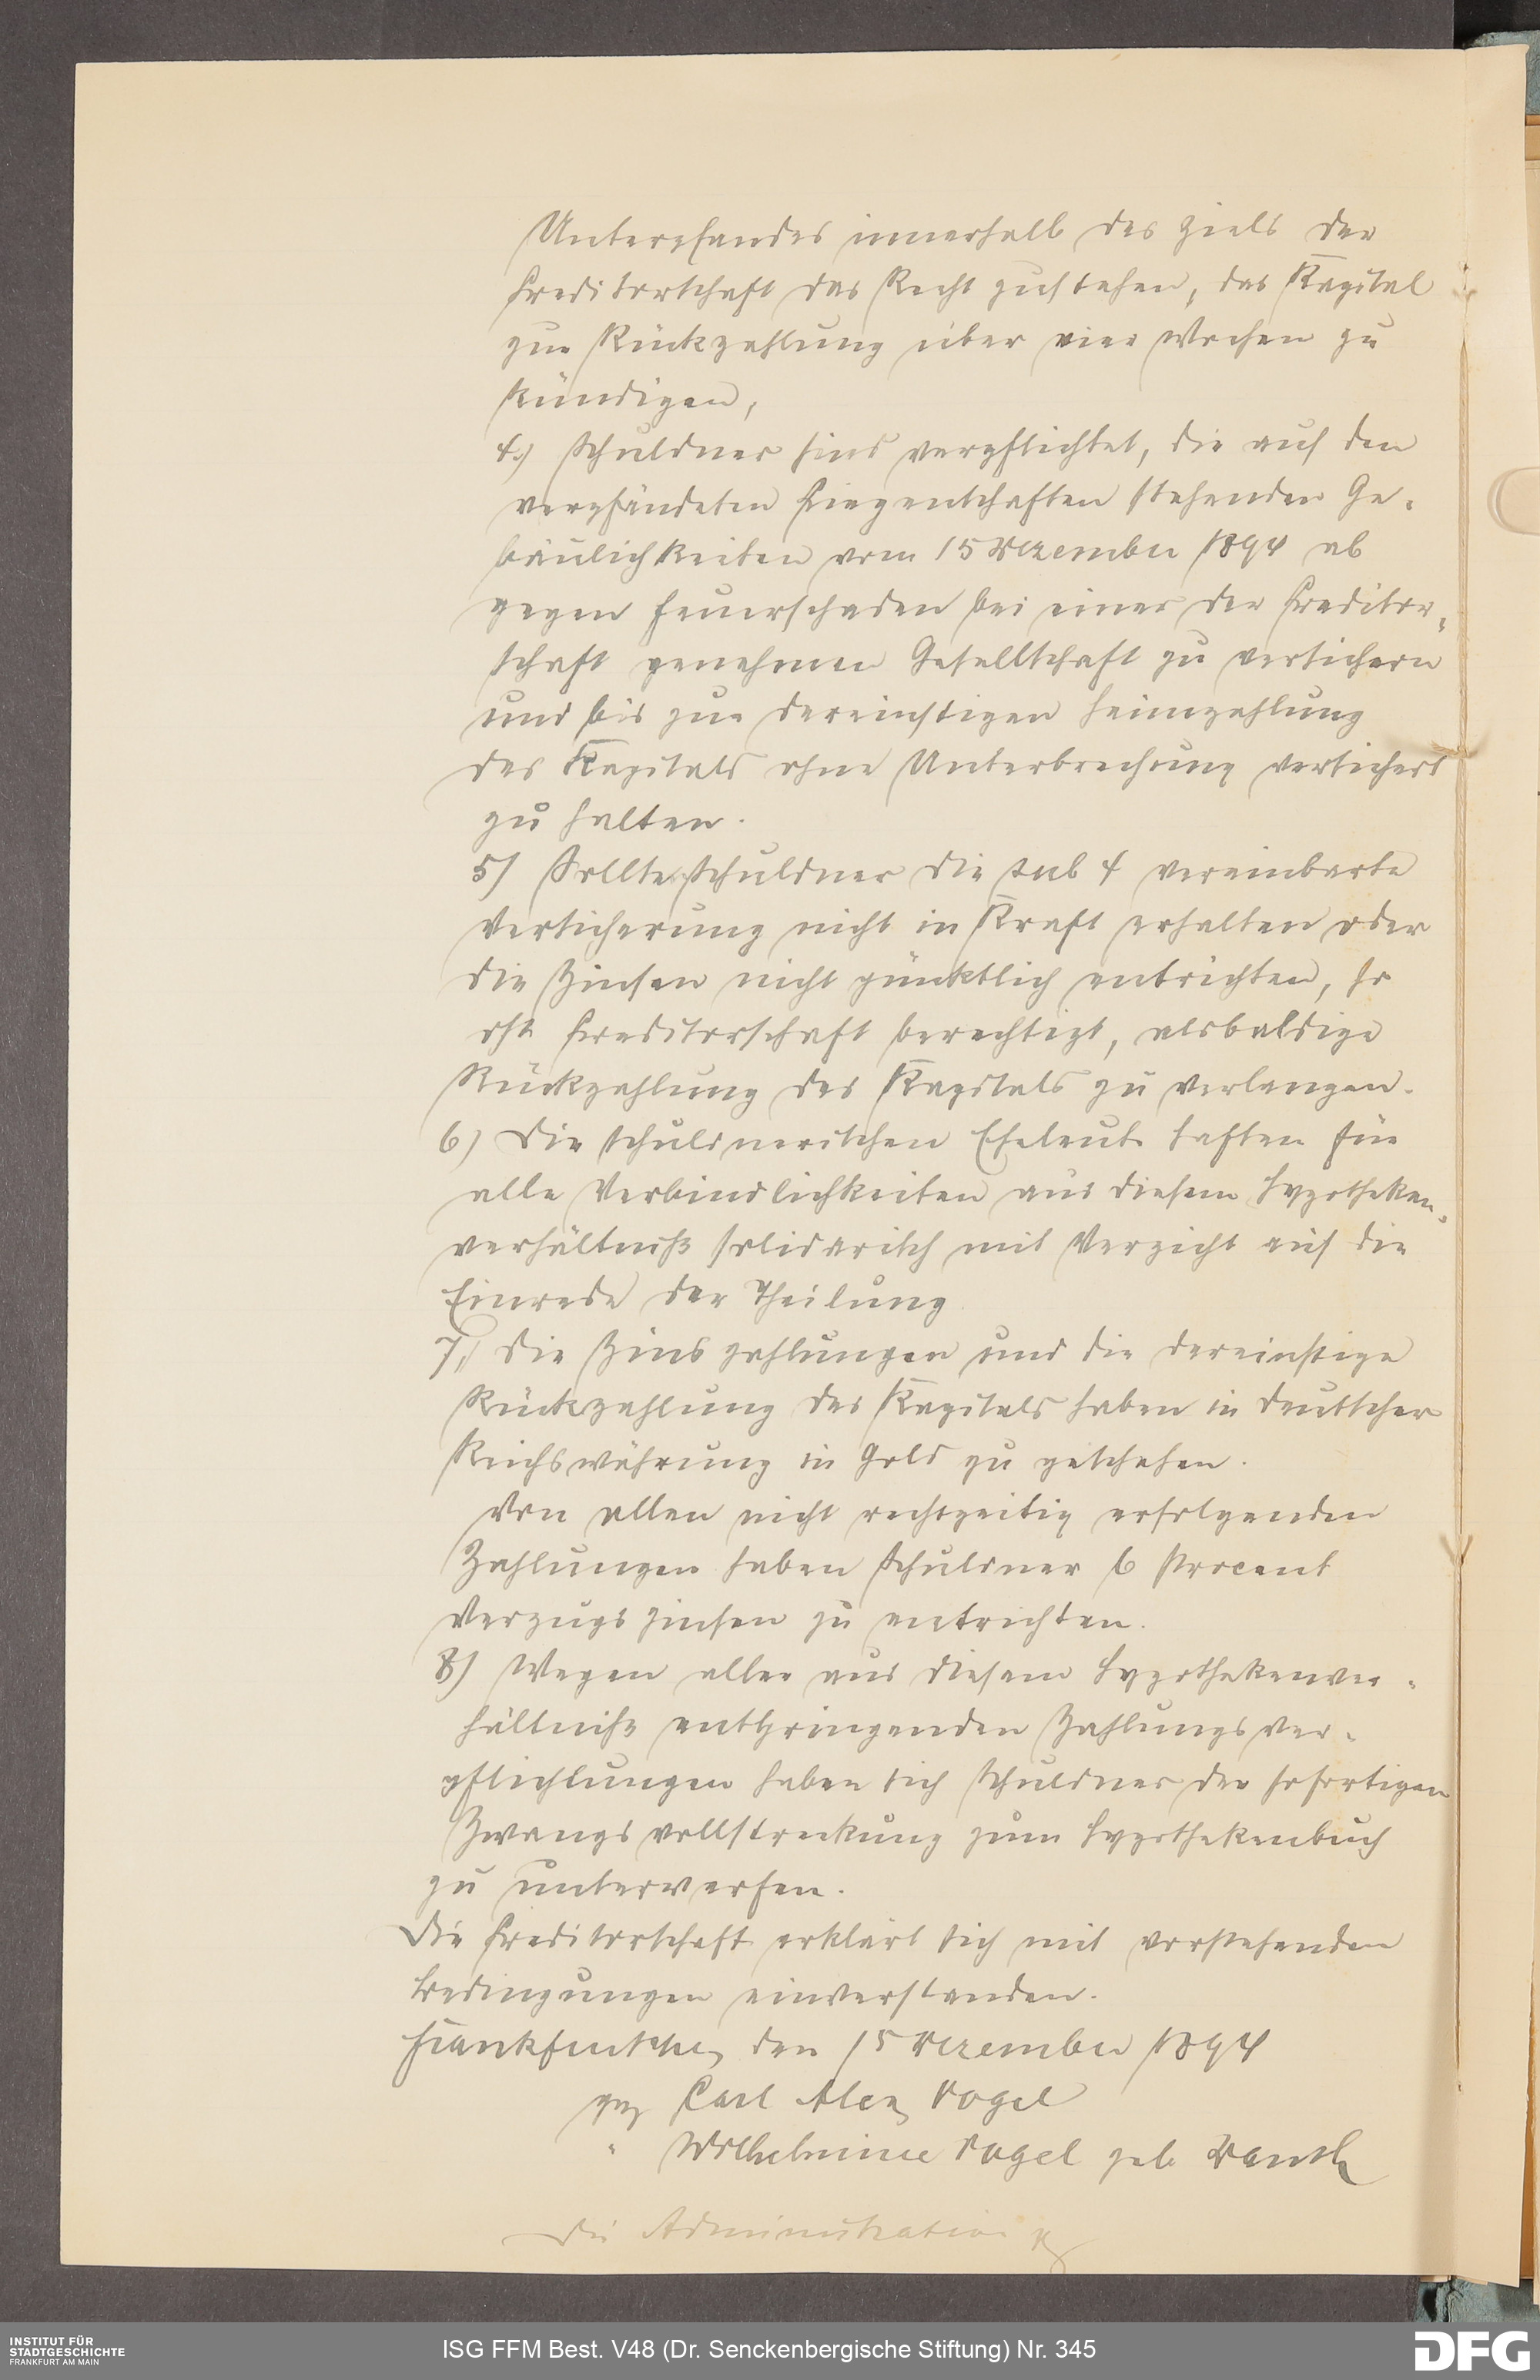 Unterpfandes innerhalb des Ziels der
Creditorschaft das Recht zustehen, das Kapital
zur Rückzahlung über vier Wochen zu
kündigen,
4.) Schuldner sind verpflichtet, die auf den
verpfändeten Liegenschaften stehenden Ge-
bäulichkeiten vom 15 Dezember 1894 ab
gegen Feuerschaden bei einer der Creditor-
schaft genehmen Gesellschaft zu versichern
und bis zur dereinstigen Heimzahlung
des Kapitals ohne Unterbrechung versichert
zu halten.
5) Sollte Schuldner die sub 4 vereinbarte
Versicherung nicht in Kraft erhalten oder
die Zinsen nicht pünktlich entrichten, so
ist Creditorschaft berechtigt, alsbaldige
Rückzahlung des Kapitals zu verlangen.
6) Die schuldnerischen Eheleute haften für
alle Verbindlichkeiten aus diesem Hypotheken-
verhältniß solidarisch mit Verzicht auf die
Einrede der Theilung
7,) Die Zinszahlungen und die dereinstige
Rückzahlung des Kapitals haben in deutscher
Reichswährung in Gold zu geschehen.
Von allen nicht rechtzeitig erfolgenden
Zahlungen haben Schuldner 6 Procent
Verzugszinsen zu entrichten.
8) Wegen aller aus diesem Hypothekenver-
hältniß entspringenden Zahlungsver-
pflichtungen haben sich Schuldner der sofortigen
Zwangsvollstreckung zum Hypothekenbuch
zu unterwerfen.
Die Creditorschaft erklärt sich mit vorstehenden
Bedingungen einverstanden.
den 15 Dezember 1894
gez Carl Alex Vogel
" Wilhelmine Vogel geb
Die Administration
INSTITUT FÜR
STADTGESCHICHTE
FRANKFURT AM MAIN
ISG FFM Best. V48 (Dr. Senckenbergische Stiftung) Nr. 345
DFG